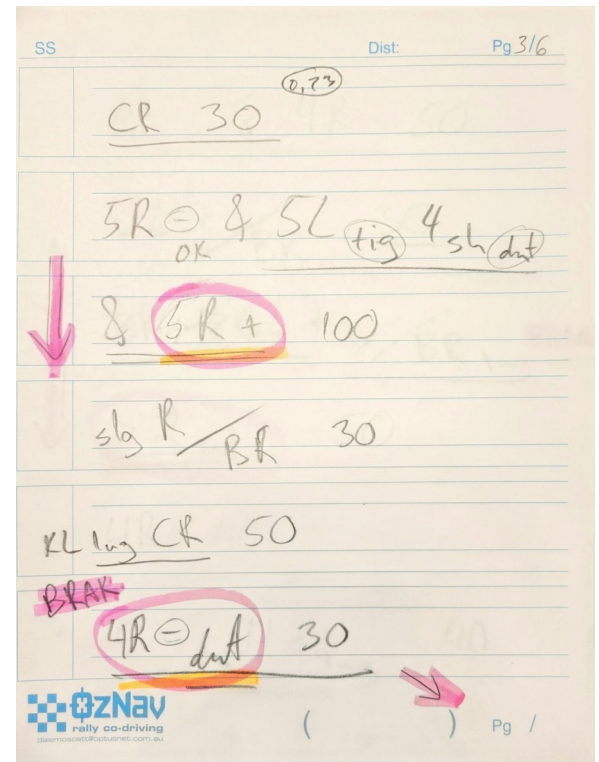 SS Dist: Pg 3/6
0,73
CR 30
5R ⊖ & 5L tig 4 sh dnt
OK
& 5R + 100
slg R / BR 30
KL lng CR 50
BRAK
4R ⊖ dnt 30
OzNav
rally co-driving
( ) Pg /